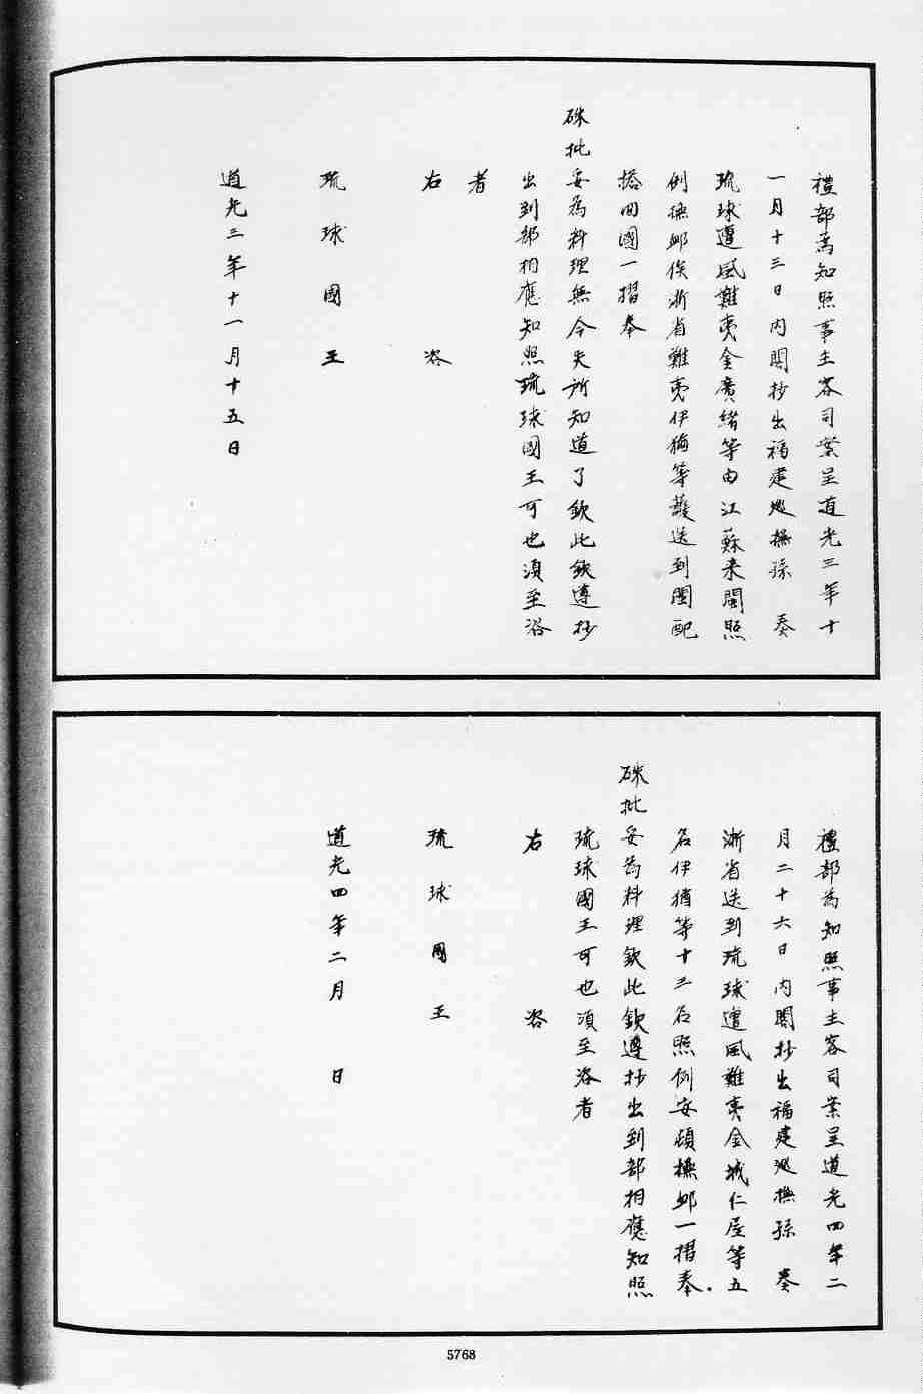 禮部為知照事主客司案呈道光三年十
一月十三日內閣抄出福建廵撫孫　奏
琉球遭風難夷金廣緒等由江蘇來閩照
例撫卹俟浙省難夷伊猶等護送到閩配
搭回國一摺奉
硃批妥為料理無令失所知道了欽此欽遵抄
出到部相應知照琉球國王可也須至咨
者
右　咨
琉球國王
道光三年十一月十五日
禮部為知照事主客司案呈道光四年二
月二十六日內閣抄出福建廵撫孫　奏
浙省送到琉球遭風難夷金城仁屋等五
名伊猶等十三名照例安頓撫卹一摺奉
硃批妥為料理欽此欽遵抄出到部相應知照
琉球國王可也須至咨者
右　咨
琉球國王
道光四年二月　日
5768